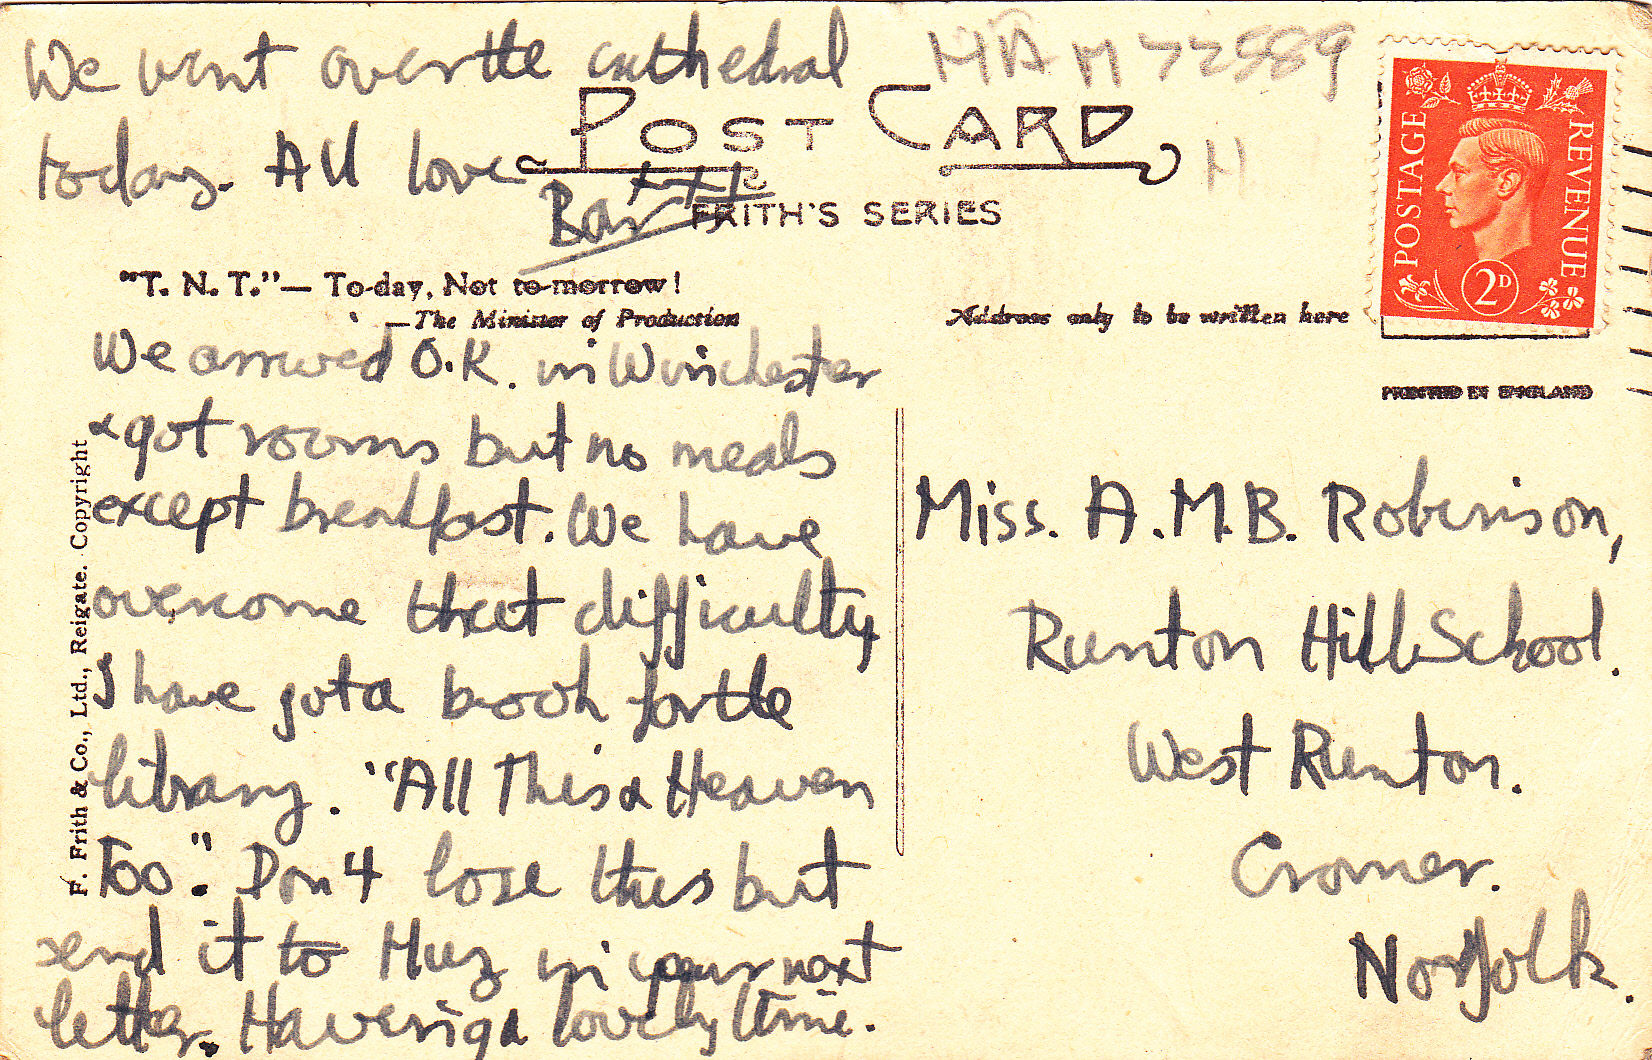 We went over the cathedral
today. All love
Bar
xxx
MAM 72589
H
POST CARD
FRITH'S SERIES
"T. N. T."— To-day, Not to-morrow!
—The Minister of Production
Address only to be written here
POSTAGE
REVENUE
2D
PRINTED IN ENGLAND
F. Frith & Co., Ltd., Reigate. Copyright
We arrived O.K. in Winchester
& got rooms but no meals
except breakfast. We have
overcome that difficulty
I have got a book for the
library. "All This & Heaven
Too". Don't lose this but
send it to in your next
letter. Having a lovely time.
Miss. A.M.B. Robinson,
Runton Hill School.
West Runton.
Cromer.
Norfolk.